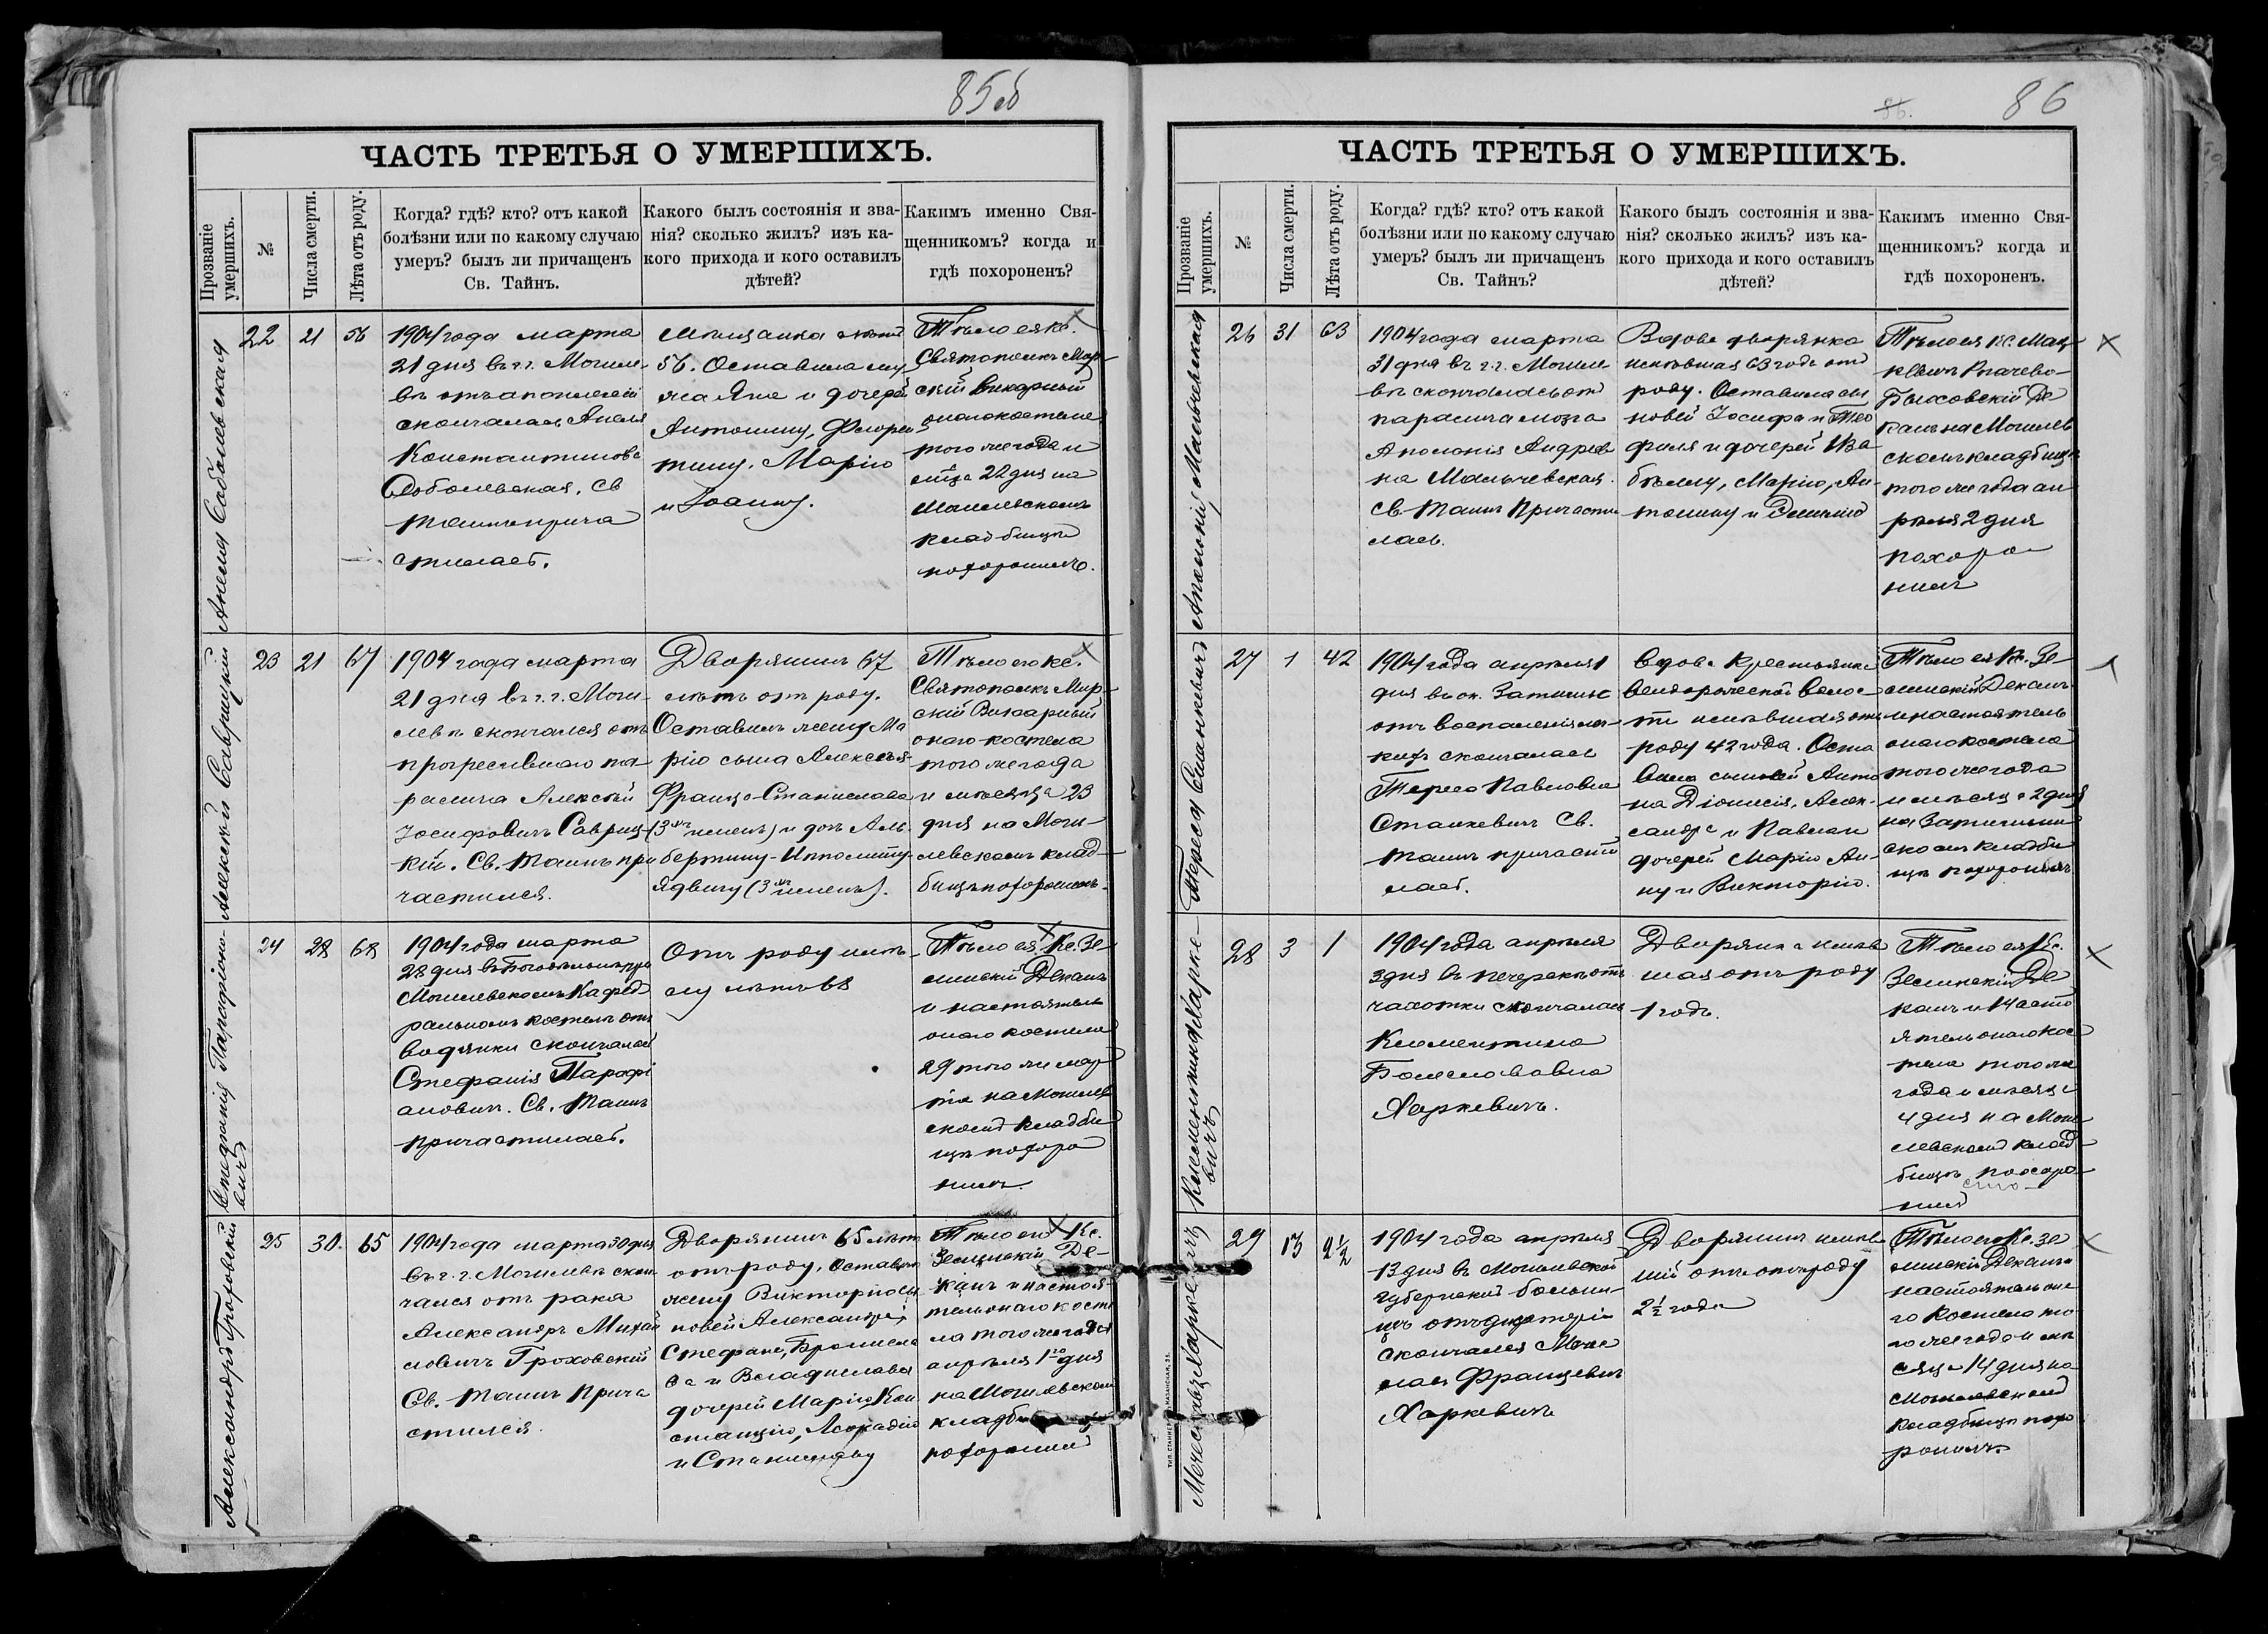 85об
ЧАСТЬ ТРЕТЬЯ О УМЕРШИХЪ.
Прозваніе умершихъ.
№
Числа смерти.
Лѣта отъ роду.
Когда? гдѣ? кто? отъ какой
болѣзни или по какому случаю
умеръ? былъ ли причащенъ
Св. Тайнъ.
Какого былъ состоянія и зва-
нія? сколько жилъ? изъ ка-
кого прихода и кого оставилъ
дѣтей?
Какимъ именно Свя-
щенникомъ? когда и
гдѣ похороненъ?
Анеля Соболевская
22
21
56
1904 года марта
21 дня въ г. г. Могиле-
въ отъ апоплексіи
скончалась Анеля
Константинова
Соболевская. Св
Таинъ прича
стилась.
Мѣщанка лѣтъ
56. Оставила му
жа Яна и дочерей
Антонину, Флорен
тину, Марію
и Іоанну.
Тѣло ея кс.
Святополкъ Мир-
скій Викарный
онаго костела
того же года и
м-ца 22 дня на
Могилевскомъ
кладбищѣ
похоронилъ.
Алексѣй Саврицкій
23
21
67
1904 года марта
21 дня въ г. г. Моги-
левѣ скончался отъ
прогресивнаго па-
ралича Алексѣй
Іосифовичъ Савриц-
кій. Св. Таинъ при
частился.
Дворянинъ 67
лѣтъ отъ роду.
Оставилъ жену Ма
рію сына Алексѣя-
Франца-Станислава
(3-хъ именъ) и доч. Аль-
бертину-Ипполиту-
Ядвигу (3-хъ именъ).
Тѣло его кс.
Святополкъ Мир-
скій Викарный
онаго костела
того же года
и мѣсяца 23
дня на Моги-
левскомъ клад-
бищѣ похоронилъ.
Стефанія Парафіано-
вичъ
24
28
68
1904 года марта
28 дня въ Богодѣльнѣ при
Могилевскомъ Кафед
ральномъ костелѣ отъ
водянки скончалась
Стефанія Парафі
ановичъ. Св. Таинъ
причастилась.
Отъ роду имѣ-
ла лѣтъ 68
Тѣло ея Кс. Зе
линскій Деканъ
и настоятель
онаго костела
29 того же мар
та на Могилев
скомъ кладби
щѣ похоро
нилъ.
Александръ Гроховскій
25
30.
65
1904 года марта 30 дня
въ г. г. Могилевѣ скон
чался отъ рака
Александръ Михай
ловичъ Гроховскій
Св. Таинъ прича
стился.
Дворянинъ 65 лѣтъ
отъ роду. Оставилъ
жену Викторію сы
новей Александра,
Стефана, Бронисла
ва и Владислава
дочерей Марію Кон
станцію, Леокадію
и Станиславу
Тѣло его Кс.
Зелинскій Де-
канъ и настоя-
тель онаго косте
ла того же года
апрѣля 1-го дня
на Могилевскомъ
кладби
похоронилъ
86
ЧАСТЬ ТРЕТЬЯ О УМЕРШИХЪ.
Прозваніе умершихъ.
№
Числа смерти.
Лѣта отъ роду.
Когда? гдѣ? кто? отъ какой
болѣзни или по какому случаю
умеръ? былъ ли причащенъ
Св. Тайнъ?
Какого былъ состоянія и зва-
нія? сколько жилъ? изъ ка-
кого прихода и кого оставилъ
дѣтей?
Какимъ именно Свя-
щенникомъ? когда и
гдѣ похороненъ.
Аполонія Мальчевская
26
31
63
1904 года марта
31 дня въ г. г. Могиле
вѣ скончалась отъ
паралича мозга
Аполонія Андреев
на Мальчевская.
Св. Таинъ Причасти
лась.
Вдова дворянка
имѣвшая 63 года отъ
роду. Оставила сы
новей Іосифа и Тео
филя и дочерей Иза
бѣллу, Марію, Ан-
тонину и
Тѣло ея кс. Мац
Рогачево-
Быховскій Де
канъ на Могилев
скомъ кладбищѣ
того же года ап
рѣля 2 дня
похоро
нилъ
Тереса Станкевичъ
27
1
42
1904 года апрѣля 1
дня въ ок. Затишье
отъ воспаленія лег-
кихъ скончалась
Тереса Павловна
Станкевичъ Св.
Таинъ причасти
лась.
Вдова крестьянка
Вендорожской волос
ти имѣвшая отъ
роду 42 года. Оста
вила сыновей Анто
на Діонисія, Алек-
сандра и Павла и
дочерей Марію Ан-
ну и Викторію.
Тѣло ея Кс. Зе-
линскій Деканъ
и настоятель
онаго костела
того же года
и мѣсяца 2 дня
на Затишин
скомъ кладби
щѣ похоронилъ
Клементина Харке-
вичъ
28
3
1
1904 года апрѣля
3 дня въ Печерскѣ отъ
чахотки скончалась
Клементина
Болеславовна
Харкевичъ.
Дворянка имѣв
шая отъ роду
1 годъ.
Тѣло ея Кс.
Зелинскій Де
канъ и Насто
ятель онаго кос
тела того же
года и мѣсяца
4 дня на Моги
левскомъ клад-
бищѣ похоро-
нилъ
Мечиславъ Харкевичъ
29
13
2½
1904 года апрѣля
13 дня въ Могилевской
губернской больни-
цѣ отъ дизентеріи
скончался Мечи
славъ Францевичъ
Харкевичъ
Дворянинъ имѣв
шій отъ роду
2½ года
Тѣло его Кс. Зе
линскій Деканъ и
настоятель она
го костела то
го же года и мѣ
сяца 14 дня на
Могилевскомъ
кладбищѣ похо
ронилъ.